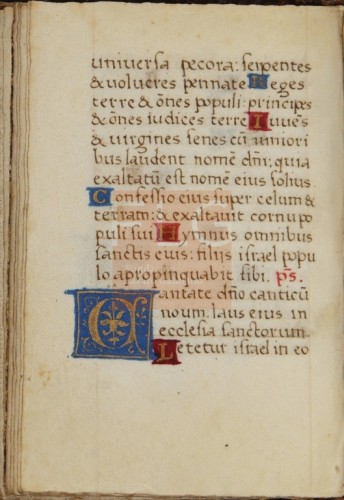 universa pecora: serpentes
& volucres pennate Reges
terre & oēs populi: principes
& oēs iudices terre Iuuēs
& virgines senes cū iuniori
bus laudent nomē dnī: quia
exaltatū est nomē eius solius
Confessio eius super celum &
terram: & exaltavit cornu po
puli sui Hymnus omnibus
sanctis eius: filijs israel popu
lo apropinquabit sibi. p̄s.
Cantate dn̄o canticū
novum. laus eius in
ecclesia sanctorum
Letetur israel in eo